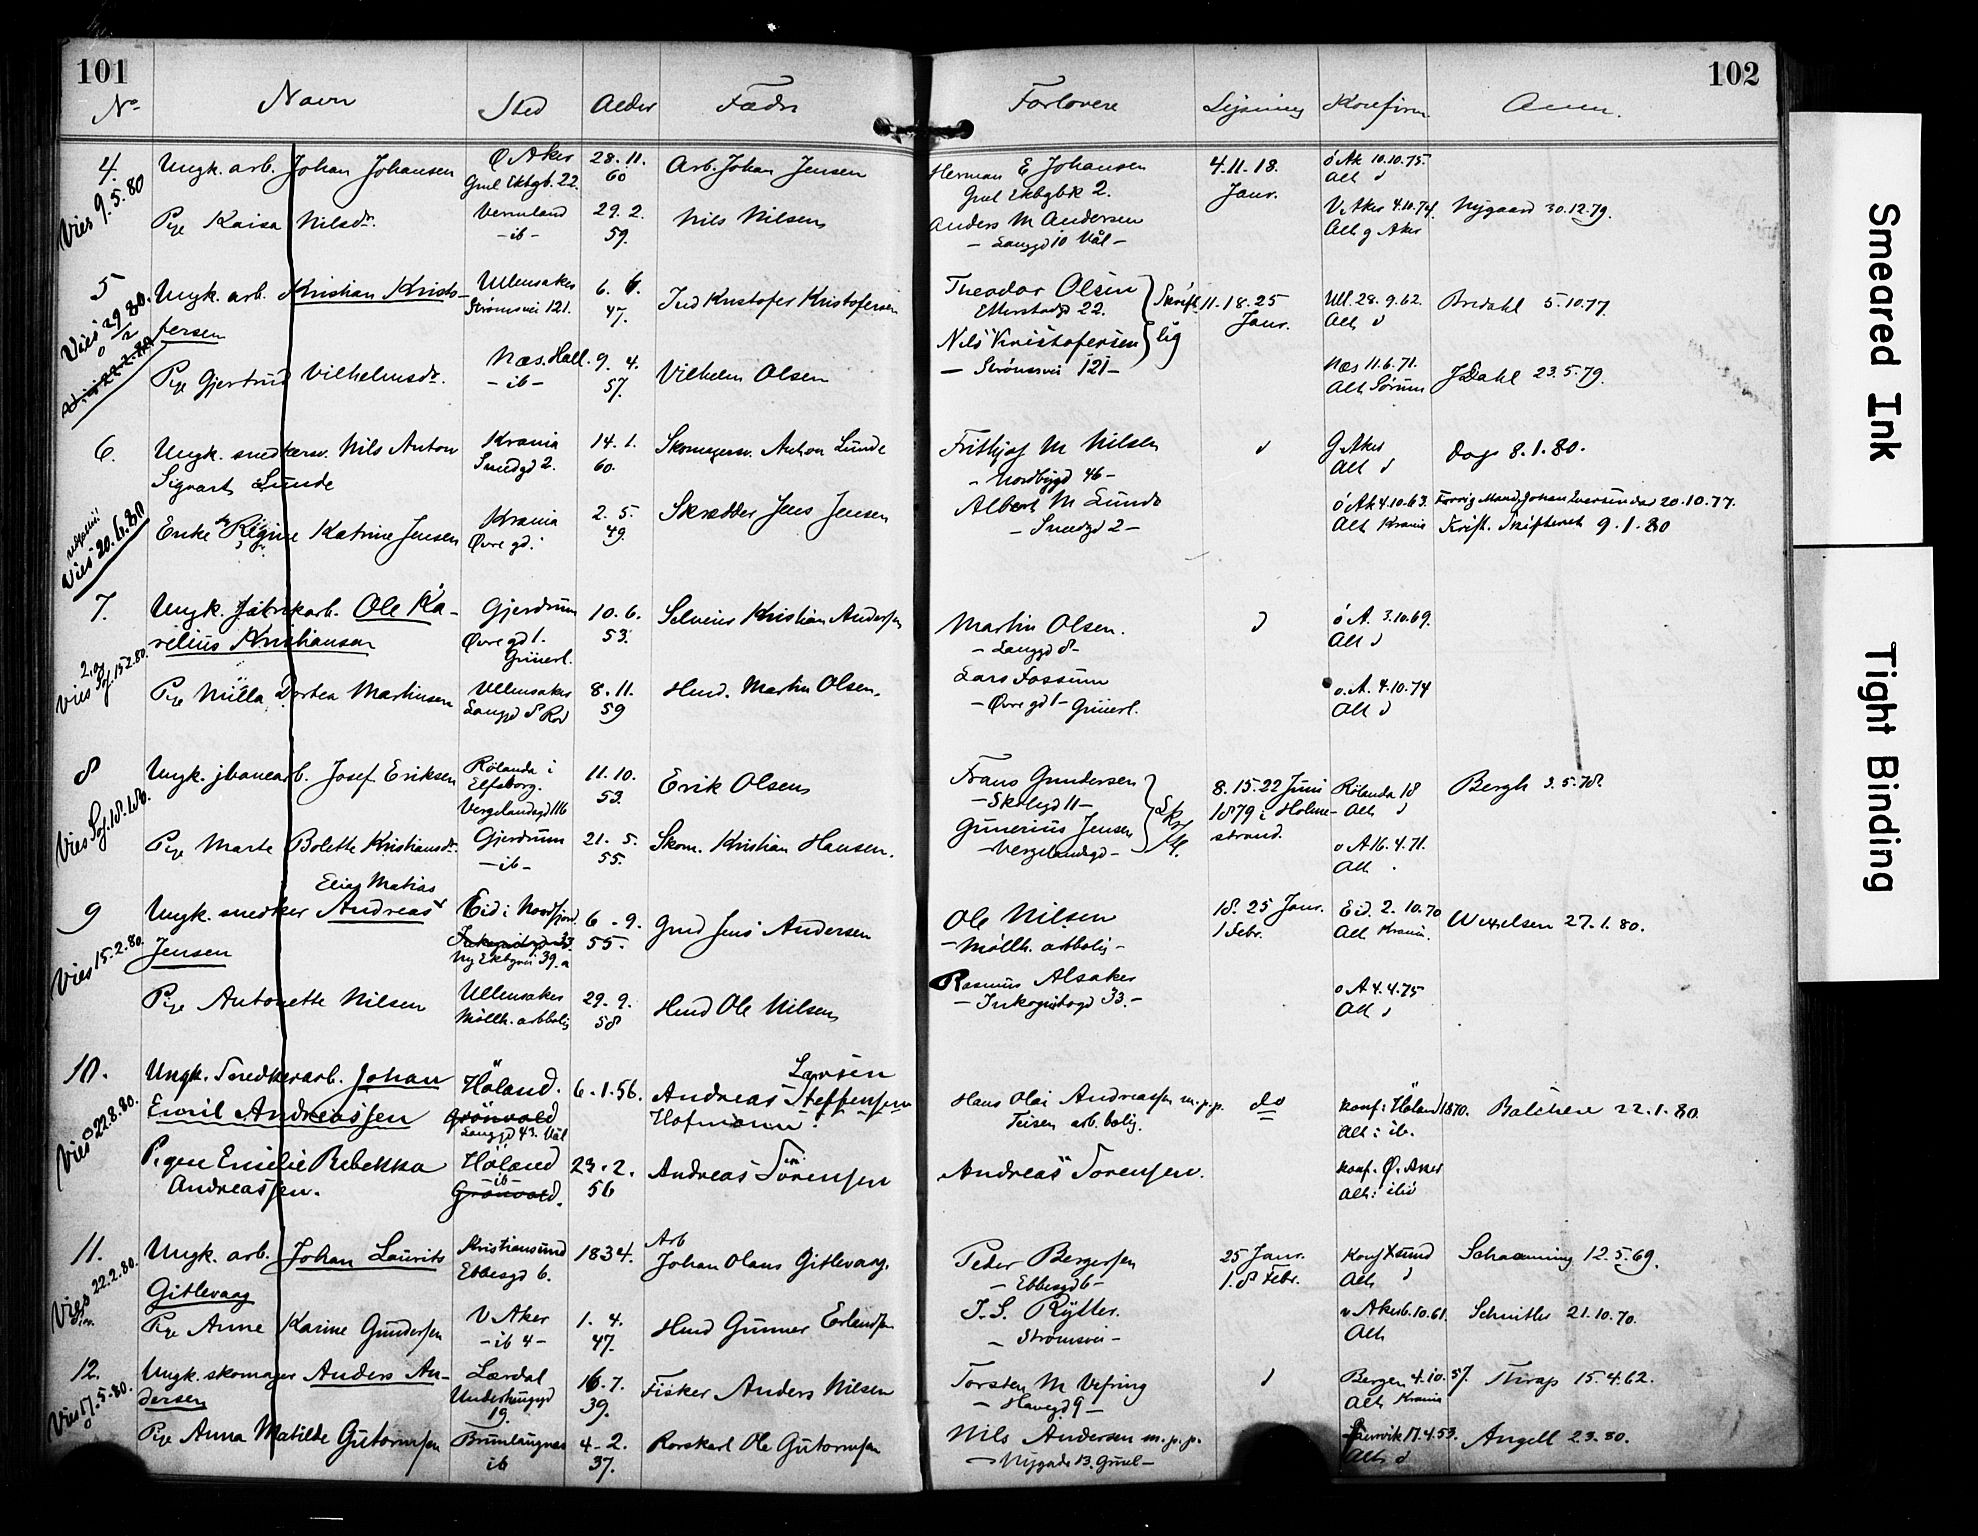 101
102
No
Navn
Sted
Alder
Fædre
Forlovere
Lysning
Konfirm
Anm.
4.
Vies 9.5.80
Ungk. arb. Johan Johansen
Ø Aker
28.11.
60
Arb. Johan Jensen
Herman E Johansen
4.11.18.
Janr.
ö Ak 10.10.75.
Alt
Pige Kaisa Nilsdr.
Vermland
-ib-
29.2.
59.
Nils Nilsen
Anders M Andersen
- Langgd 10 Vål -
V. Aker 4.10.74.
Alt g Aker
Nygaard 30.12.79.
5
Vies 29/2 80.
Ungk. arb. Kristian Kristo-
fersen
Ullensaker
Strömsvei 121.
6. 6.
47.
Ind Kristofer Kristofersen
Theodor Olsen
Etterstadgd 22.
Skrift
lig
11-18.25
Janr.
Ull. 28.9.62.
Alt
Bredahl 5.10.77.
Nils Kristofersen
- Strömsvei 121 -
Pige Gjertrud Vilhelmsdr.
Næs. Hall.
-ib-
9. 4.
57.
Vilhelm Olsen
Næs 11.6.71.
Alt Sørum
J Dahl 23.5.79.
6.
Vies 20.6.80
Ungk. snedkersv. Nils Anton
Sigvart Lunde
Krania
Smedgd 2.
14.1.
60.
Skomagersv. Anton Lunde
Frithjof M Nilsen
- Nordbygd 46 -
G Aker
Alt
Dop 8.1.80.
Enke Regine Katrine Jensen
Krania
Øvre gd.
2. 5.
49.
Skrædder Jens Jensen
Albert M Lunde
- Smedgd 2 -
ö Ak 4.10.63.
Alt Krania
Forrig Mand, Johan Iversen død 20.10.77.
Krist. Skifteret 9.1.80
7.
Vies 15.2.80.
Ungk. fabrikarb. Ole Ka-
relius Kristiansen
Gjerdrum
Øvre gd 1.
Grünerl.
10.6.
53.
Selveier Kristian Andersen
Martin Olsen.
- Langgd 8 -
ö A. 3.10.69.
Alt
Pige Milla Dortea Martinsen
Ullensaker
Langgd 8
8.11.
59
Husd. Martin Olsen.
Lars Fossum
- Øvre gd 1 - Grünerl.
ö. A. 4.10.74
Alt
8
Ungk. jbanearb. Josef Eriksen
Rölanda i
Elfsborg.
Vergelandsgd 116
11.10.
53.
Erik Olsen
Frans Gundersen
- Skolegd 11 -
8.15.22 Juni
1879 i Holme-
strand.
Rölanda 18
Alt
Bergh 3.5.78.
Pige Marte Bolette Kristiansdr.
Gjerdrum
-ib-
21. 5.
55.
Skom. Kristian Hansen.
Gunerius Jensen
- Vergelandsgd -
ö A 16.4.71.
Alt
9
Vies 15.2.80.
Ungk. snedker Andreas
Elias Matias
Jensen
Eid i Nordfjord
Ny Ekbgvei 39.a
6 - 9.
55.
Gmd Jens Andersen
Ole Nilsen
- Möllh. arbbolig -
18. 25 Janr.
1 Febr.
Eid. 2. 10.70
Alt Krania.
Wexelsen 27.1.80.
Pige Antonette Nilsen
Ullensaker
Möllh. arbbolig
29.9.
58
Husd Ole Nilsen
Rasmus Alsaker
- Inkognitogd 33. -
ö A 4.4.75
Alt
10.
Vies 22.8.80.
Ungk. Snedkerarb. Johan
Emil Andreassen
Höland.
Grönvold
Langgd 43. Vål
6.1.56.
Larsen
Andreas Steffensen
Hofmann.
Hans Olai Andreassen m.p.p.
Teisen arb. bolig.
do
Konf: Höland 1870.
Alt: ib.
Balchen 22.1.80.
Pigen Emilie Rebekka
Andreassen.
Höland
-ib-
Grönvold.
23.2.
56
Andreas Sörensen
Andreas Sörensen.
Konf. Ø. Aker
Alt: ibid
11.
Vies 22.2.80.
Ungk. arb. Johan Laurits
Gitlevaag
Kristiansund
Ebbesgd 6.
1834.
Arb
Johan Olaus Gitlevaag.
Peder Bergersen
- Ebbesgd 6 -
25 Janr.
1.8 Febr.
Konf Xsund
Alt
Schanning 12.5.69.
Pige Anne Karine Gundersen
V Aker
- ib 4 -
1. 4.
47.
Husd Gunner Erlandsen
I. S. Rytter.
- Strömsvei -
v Aker 6.10.61.
Alt
Schnitler 21.10.70.
12.
Vies 17.5.80.
Ungk. skomager Anders An-
dersen
Lærdal
19.
16.7.
39.
Fisker Anders Nilsen
Torsten M Vefring
- Havegd 9 -
Bergen 4.10.57.
Alt Krania
Thrap 15.4.62.
Pige Anna Matilde Gutormsen
Brunlaugnes
ib
4-2.
37.
Rorskarl Ole Gutormsen
Nils Andersen m.p.p.
- Nygade 13. Grønl -
Laurvik 17.4.53.
Alt
Angell 2.3.80.
Smeared Ink
Tight Binding